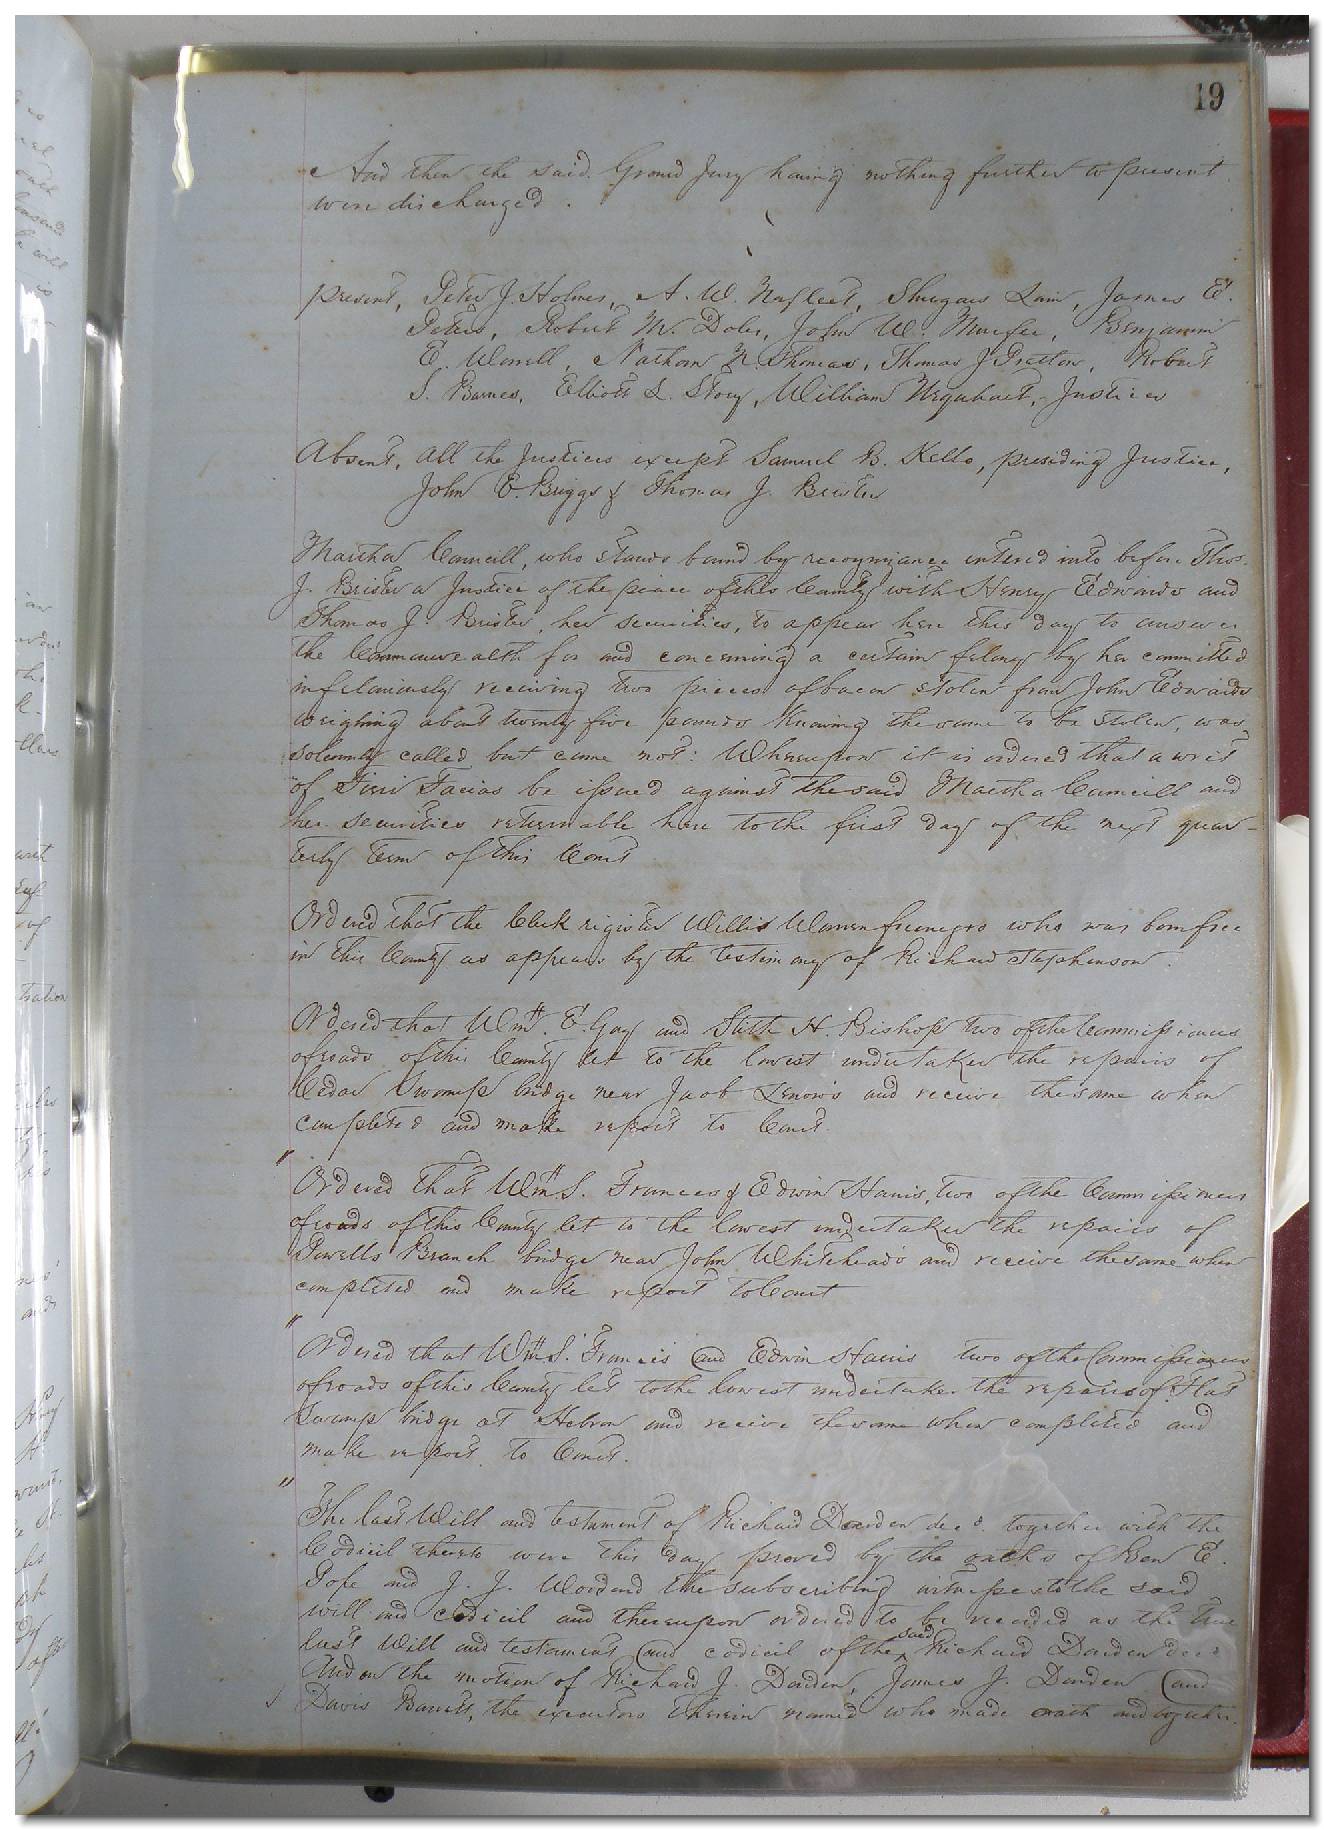 19
And then the said Grand Jury having nothing further to present
were discharged.
present, Peter J. Holmes, A. W. Norfleet, James E.
Peters, Robert M. Doles, John W. Murfee, Benjamin
E. Worrell, Nathan N. Thomas, Thomas J. Pretlow, Robert
S. Barnes, Elliott L. Story, William Urquhart, Justices
Absent, all the Justices except Samuel B. Kello, presiding Justice,
John E. Briggs & Thomas J. Brister
Martha Councill, who stands bound by recognizance entered into before Thos.
J. Brister a Justice of the peace of this County with Henry Edwards and
Thomas J. Brister, her securities, to appear here this day to answer
the Commonwealth for and concerning a certain felony by her committed
in felaniously receiving two pieces of bacon stolen from John Edwards
weighing about twenty five pounds knowing the same to be stolen, was
solemnly called but came not: Whereupon it is ordered that a writ
of Facias be issued against the said Martha Councill and
her securities returnable here to the first day of the next quar-
terly term of this Court
Ordered that the Clerk register Willis Warren free negro who was born free
in this County as appears by the testimony of Richard Stephenson.
Ordered that Wm. E. Gay and Stith H. Bishop two of the Commissioners
of roads of this County let to the lowest undertaker the repairs of
Cedar Swamp bridge near Jacob Lenow's and receive the same when
completed and make report to Court.
" Ordered that Wm S. Frances & Edwin Harris, two of the Commissioners
of roads of this County let to the lowest undertaker the repairs of
Powells Branch bridge near John Whitehead's and receive the same when
completed and make report to Court
" Ordered that Wm S. Francis and Edwin Harris two of the Commissioners
of roads of this County let to the lowest undertaker the repairs of Flat
Swamp bridge at Hebron and receive the same when completed and
make report to Court.
" The last Will and testament of Richard Darden decd. together with the
Codicil thereto were this day proved by the oaths of Ben E.
Pope and J. J. Woodard the subscribing witnesses to the said
will and codicil and thereupon ordered to be recorded as the true
last Will and testament and codicil of the said Richard Darden decd
And on the motion of Richard J. Darden, James J. Darden and
Davis Barrett, the executors therein named who made oath and together